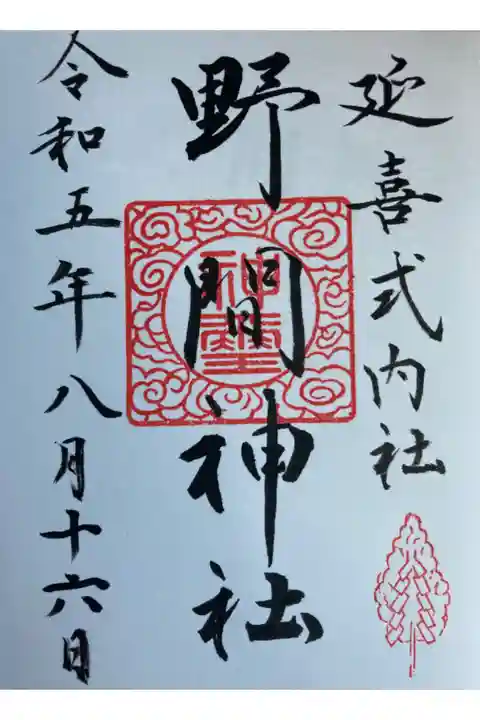 延喜式内社
野間神社
令和五年八月十六日
神璽